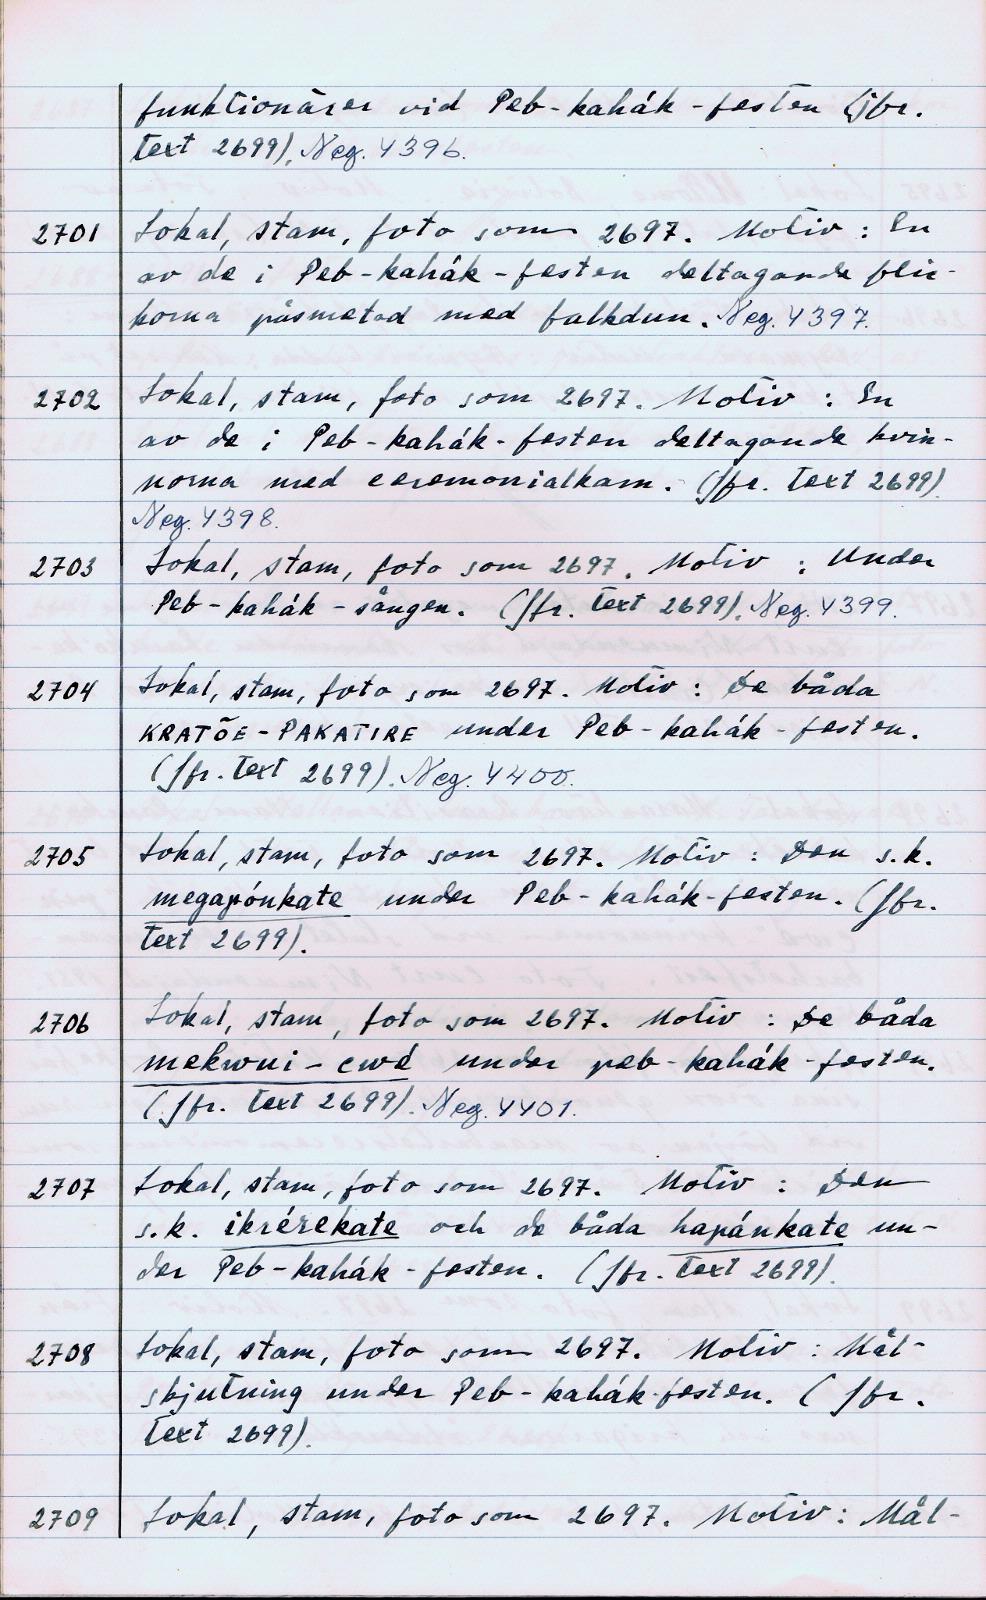 funktionärer vid Peb-kahák-festen (jfr.
text 2699). Neg. 4396.
2701 Lokal, stam, foto som 2697. Motiv: En
av de i Peb-kahák-festen deltagande flic-
korna påsmetad med falkdun. Neg. 4397.
2702 Lokal, stam, foto som 2697. Motiv: En
av de i Peb-kahák-festen deltagande kvin-
norna med ceremonialkam. (Jfr. text 2699)
Neg. 4398.
2703 Lokal, stam, foto som 2697. Motiv: Under
Peb-kahák-sången. (Jfr. text 2699). Neg. 4399.
2704 Lokal, stam, foto som 2697. Motiv: De båda
KRATÕE-PAKATIRE under Peb-kahák-festen.
(Jfr. text 2699). Neg. 4400.
2705 Lokal, stam, foto som 2697. Motiv: Den s.k.
megapónkate under Peb-kahák-festen. (Jfr.
text 2699).
2706 Lokal, stam, foto som 2697. Motiv: De båda
mekwui-cwé under peb-kahák-festen.
(Jfr. text 2699). Neg. 4401.
2707 Lokal, stam, foto som 2697. Motiv: Den
s.k. ikrérekate och de båda hapánkate un-
der Peb-kahák-festen. (Jfr. text 2699).
2708 Lokal, stam, foto som 2697. Motiv: Mål-
skjutning under Peb-kahák-festen. (Jfr.
text 2699).
2709 Lokal, stam, foto som 2697. Motiv: Mål-